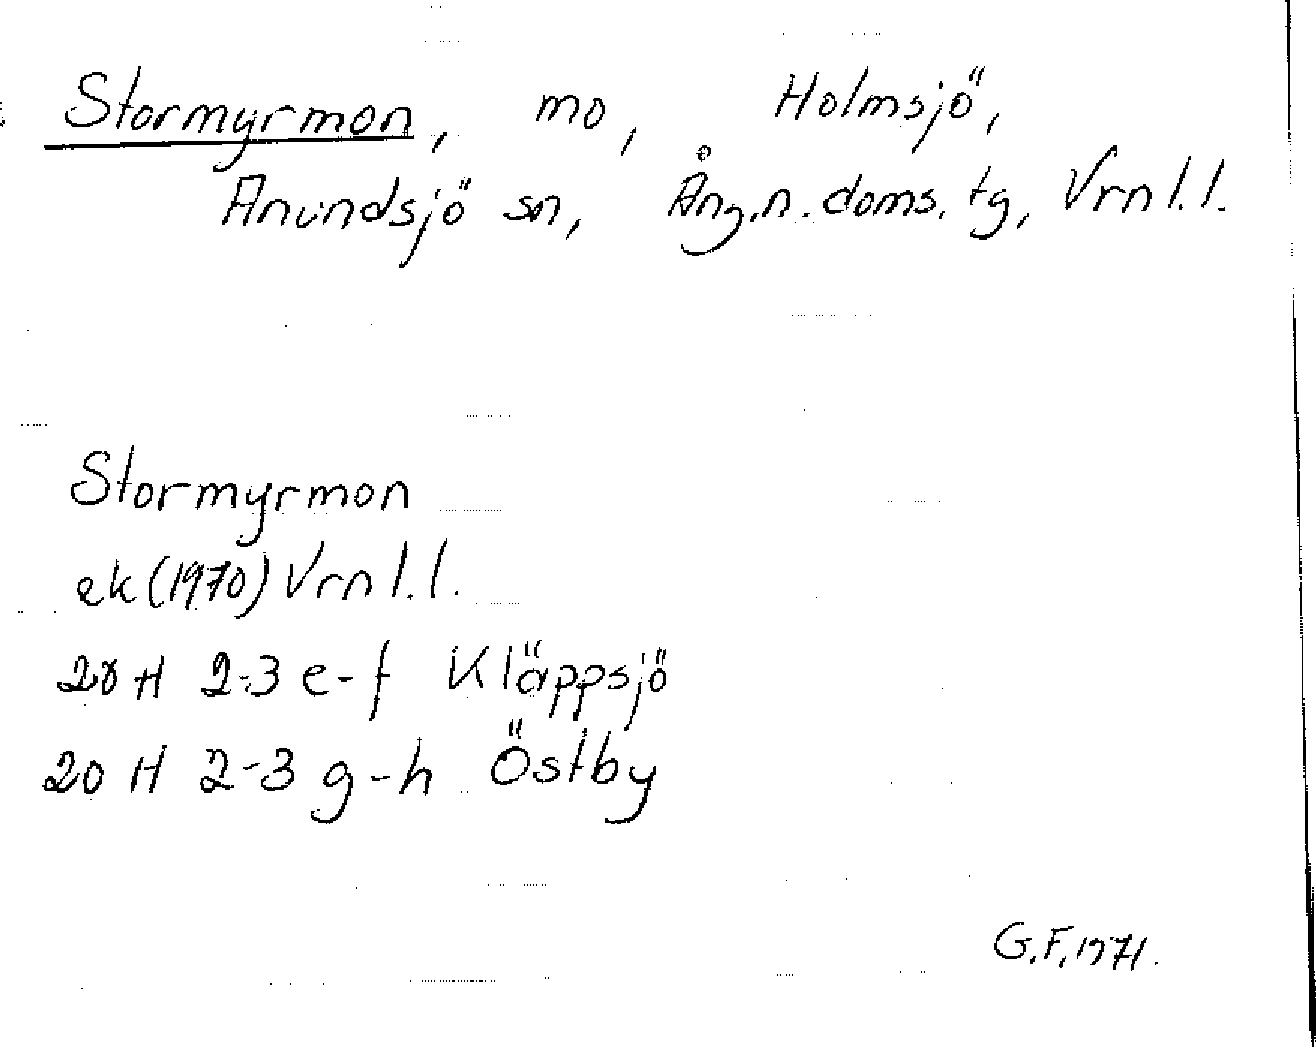 Stormyrmon, mo, Holmsjö,
Anundsjö sn, Ång.n. doms. tg, Vrn l.l.
Stormyrmon
ek (1970) Vrn l.l.
20 H 2-3 e-f Kläppsjö
20 H 2-3 g-h Östby
G.F. 1971.